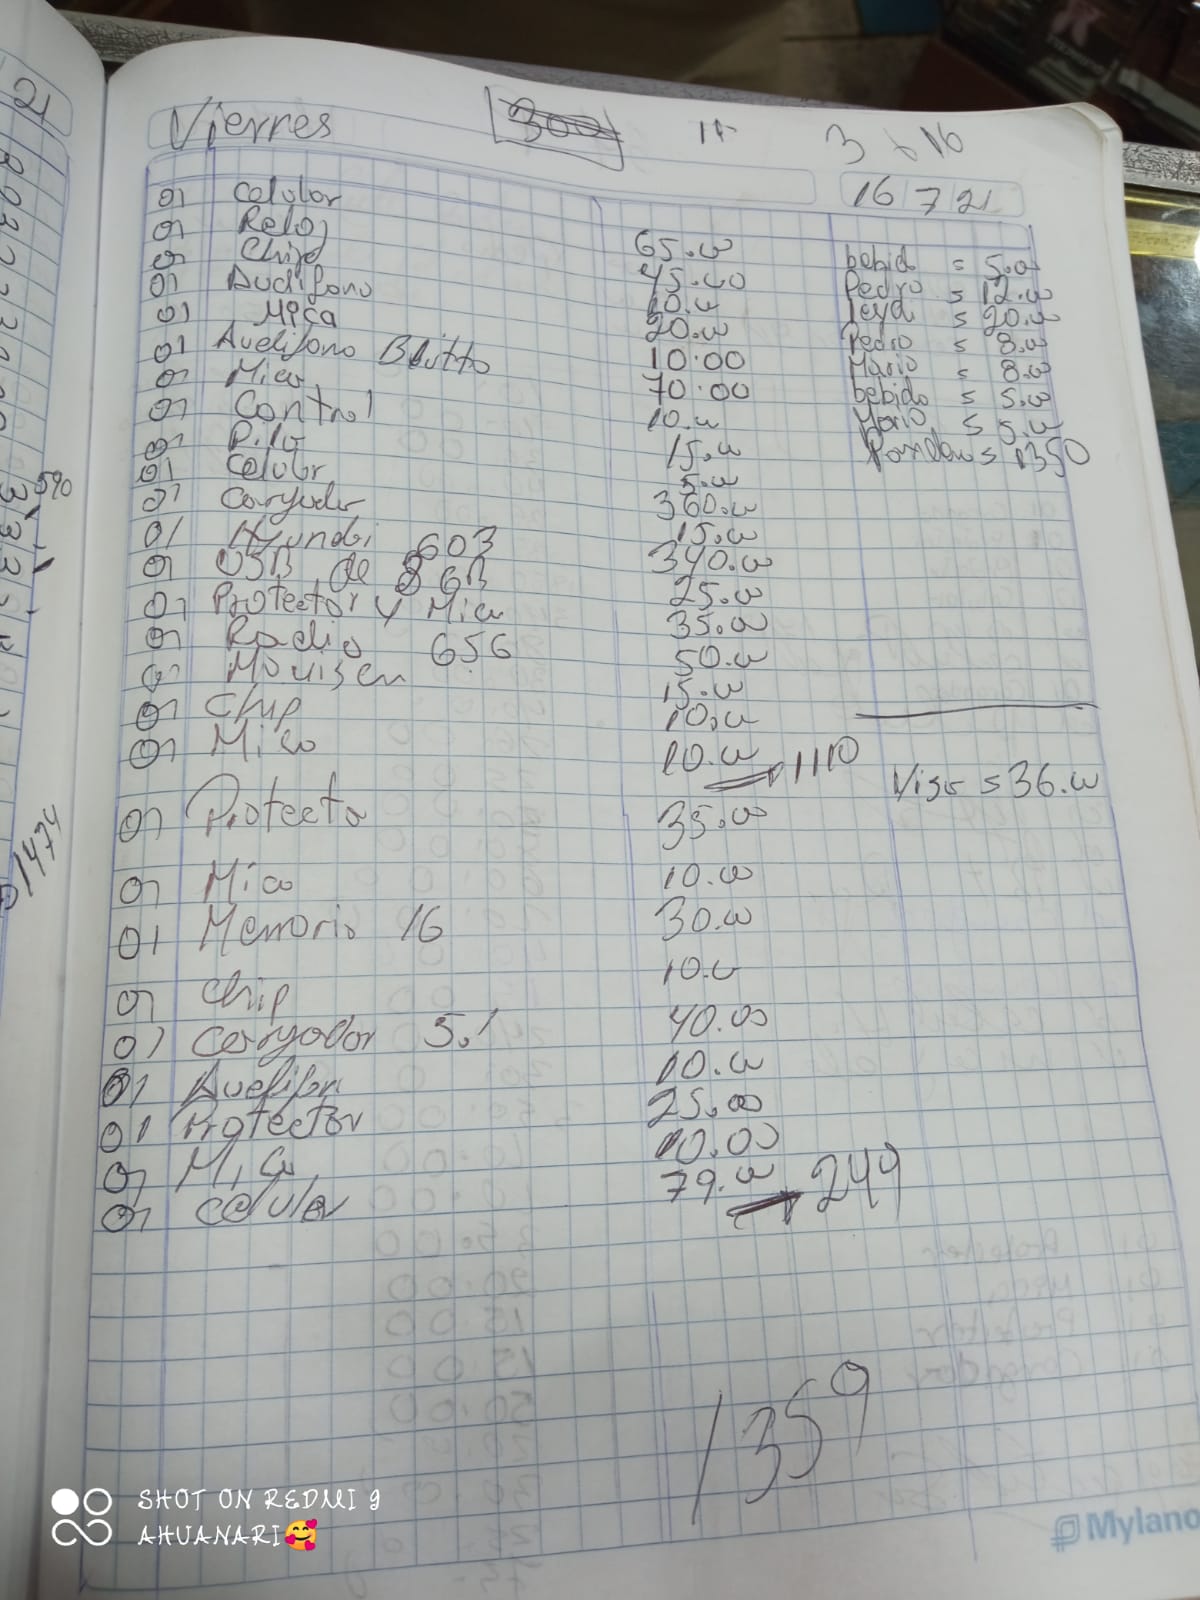 21
Vierres 300 17 3 d 16
16 7 21
01 Celular 65.00
01 Reloj 45.00
01 Chip 10.00
01 Audifono 20.00
01 Mica 10:00
01 Audifono Blutto 70:00
01 Mica 10.00
01 Control 15.00
01 Pila 5.00
01 Celular 360.00
01 Cargador 15.00
01 Hyundi 603 340.00
01 USB de 8 GB 25.00
01 Protector y Mica 35.00
01 Radio 656 50.00
01 Mouisen 15.00
01 Chip 10.00
01 Mica 10.00 1110
01 Protecto 35.00
01 Mica 10.00
01 Memoria 16 30.00
01 Chip 10.00
01 Cargador 5.1 40.00
01 Audifon 10.00
01 Protector 25.00
01 Mica 10.00
01 Celular 79.00 249
1359
bebida = 5.00
Pedro = 12.00
Leyda = 20.00
Pedro = 8.00
Mario = 8.00
bebida = 5.00
Mario = 5.00
= 1350
Visa = 36.00
590
1474
SHOT ON REDMI 9
AHUANARI🥰
Mylano